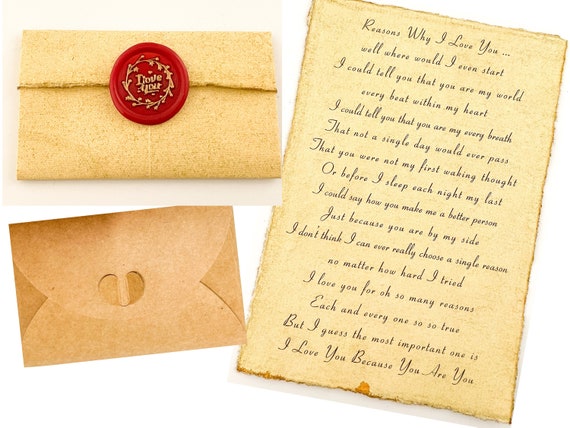 I Love
You
Reasons Why I Love You ...
well where would I even start
I could tell you that you are my world
every beat within my heart
I could tell you that you are my every breath
That not a single day would ever pass
That you were not my first waking thought
Or before I sleep each night my last
I could say how you make me a better person
Just because you are by my side
I don't think I can ever really choose a single reason
no matter how hard I tried
I love you for oh so many reasons
Each and every one so so true
But I guess the most important one is
I Love You Because You Are You